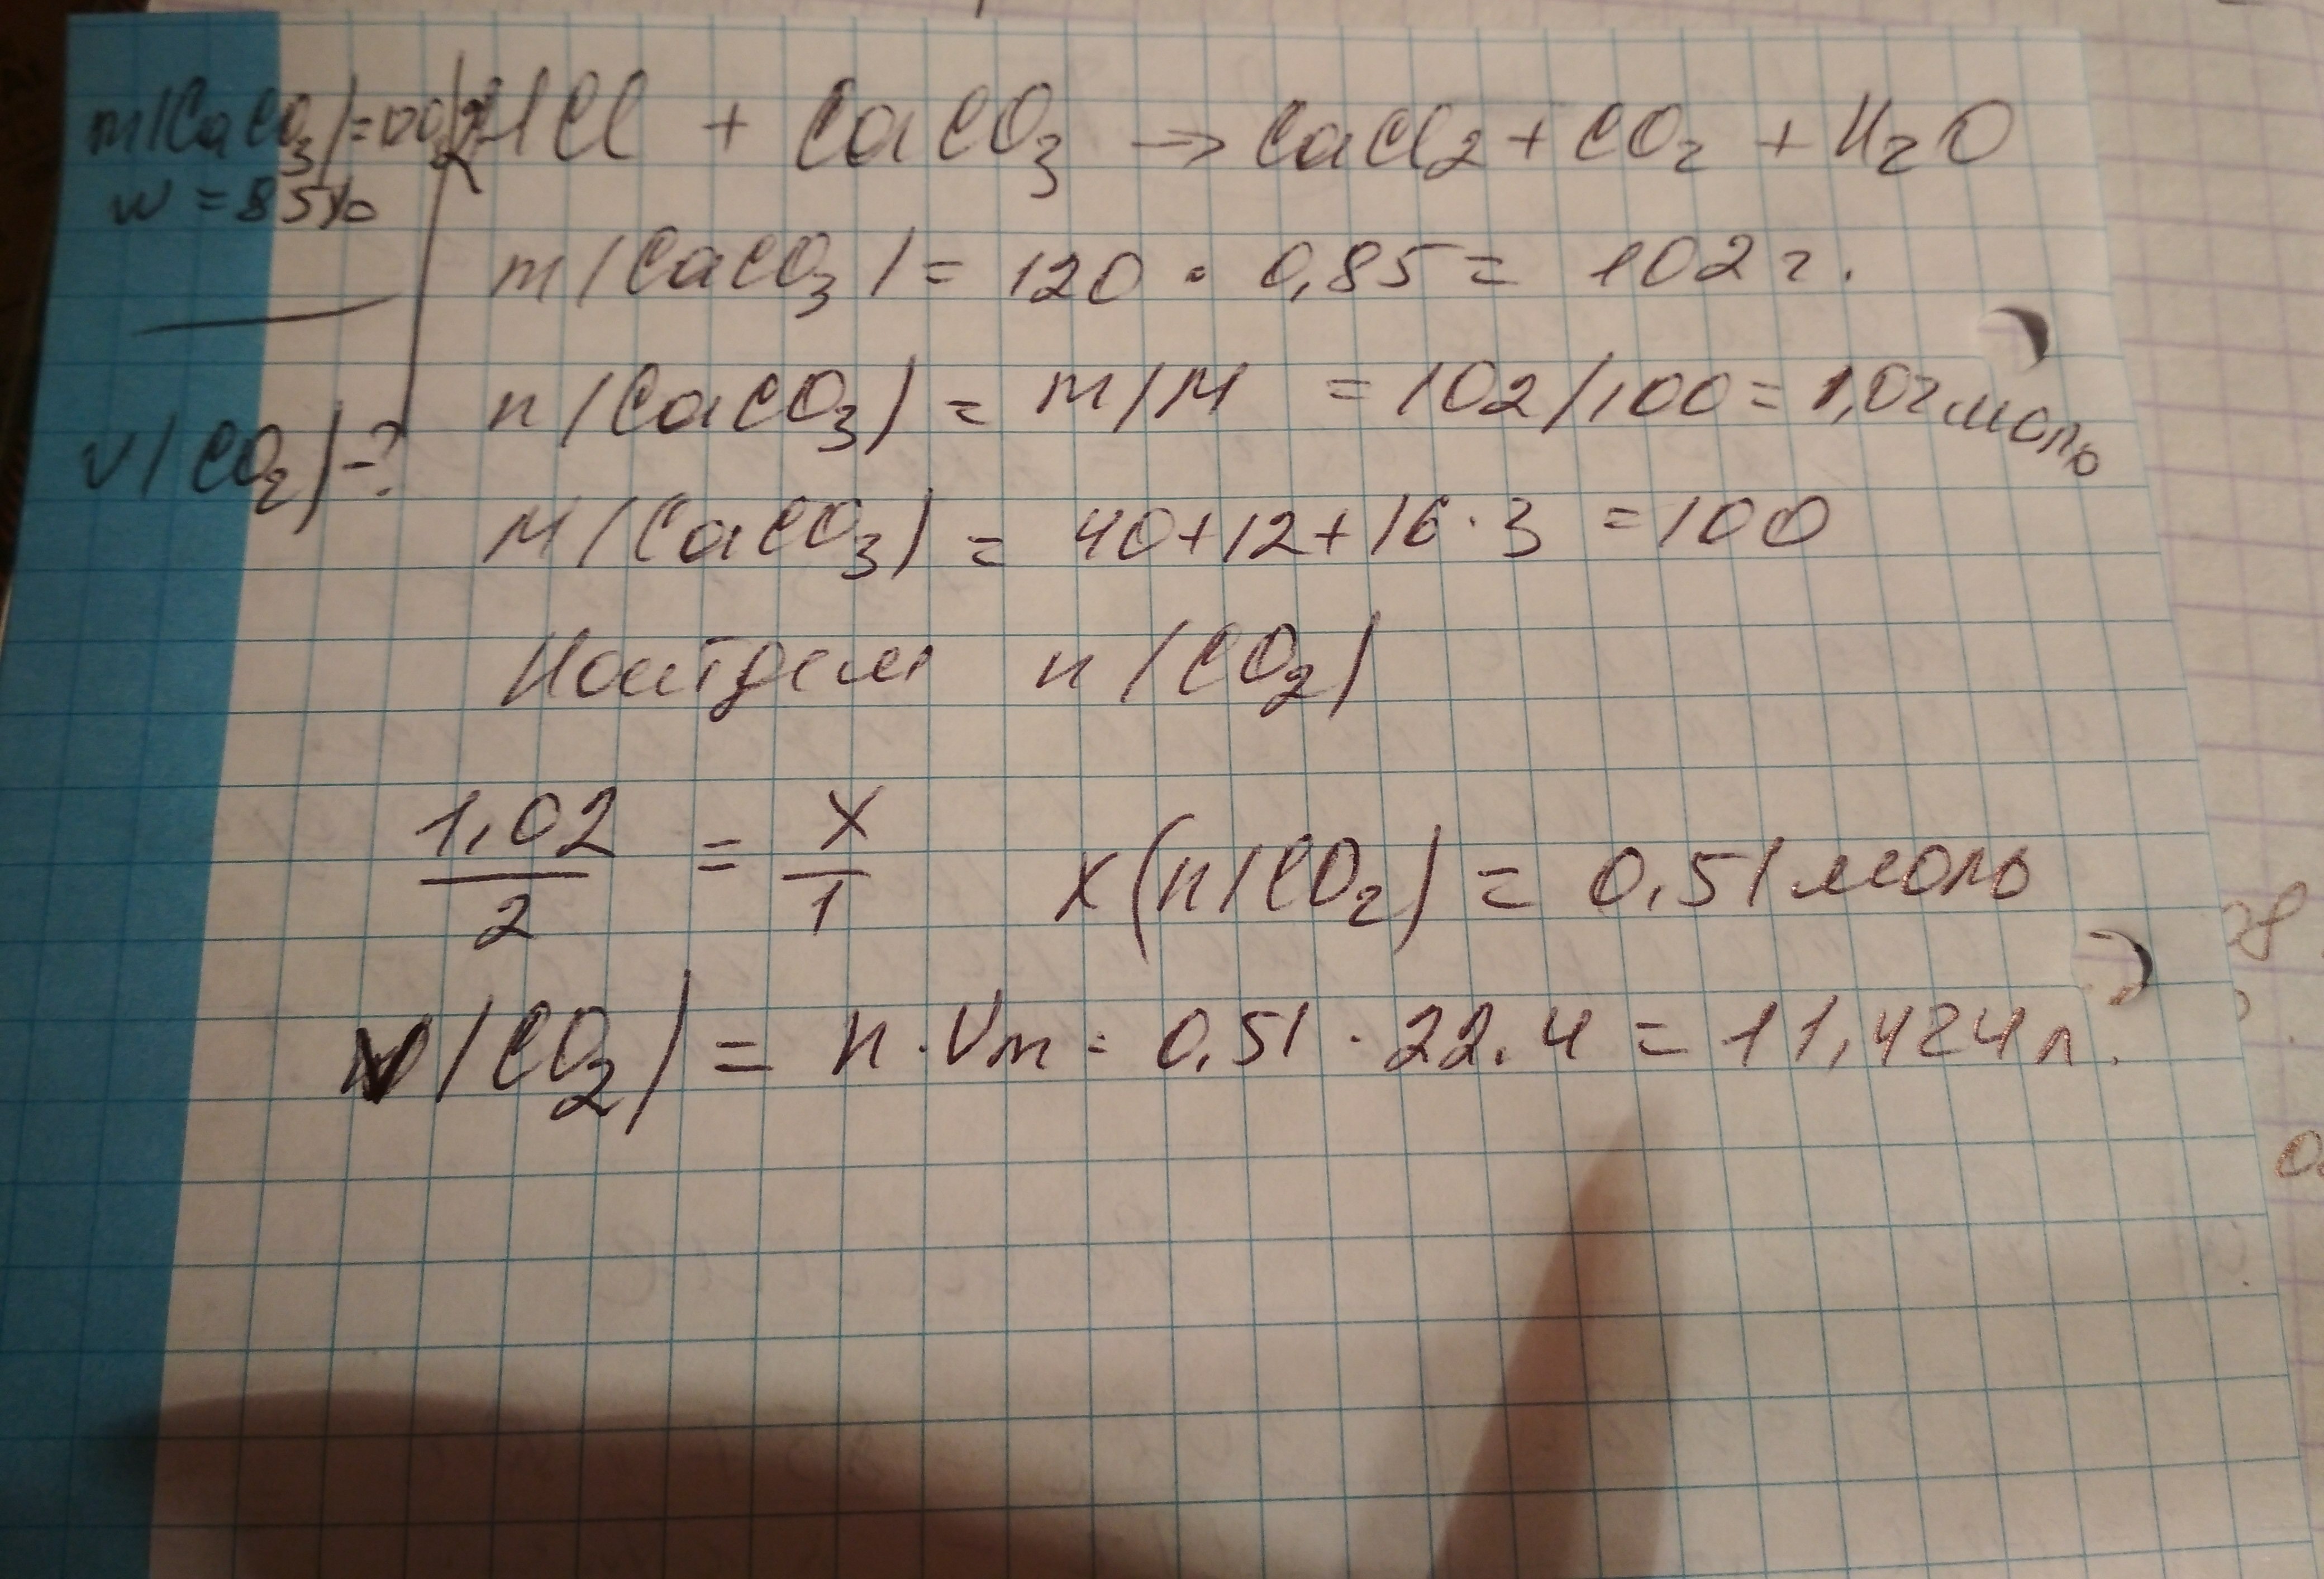 m(CaCO3)=120г 2HCl + CaCO3 → CaCl2 + CO2 + H2O
w = 85%
m(CaCO3) = 120 · 0,85 = 102 г.
n(CaCO3) = m/M = 102/100 = 1,02 моль
V(CO2) - ?
M(CaCO3) = 40+12+16·3 = 100
Найдем n(CO2)
1,02/2 = x/1 x(n(CO2) = 0,51 моль
V(CO2) = n·Vm = 0,51 · 22.4 = 11,424 л.